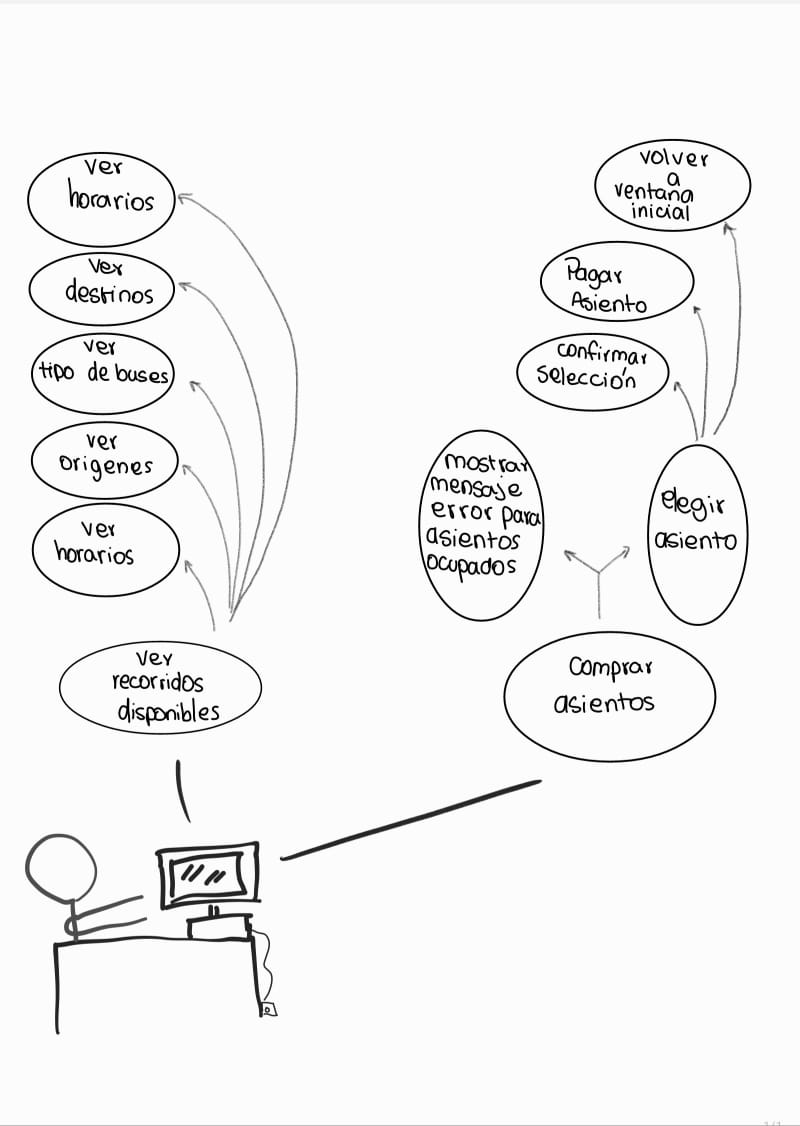 ver
horarios
ver
destinos
ver
tipo de buses
ver
origenes
ver
horarios
ver
recorridos
disponibles
volver
a
ventana
inicial
Pagar
Asiento
confirmar
selección
mostrar
mensaje
error para
asientos
ocupados
elegir
asiento
Comprar
asientos